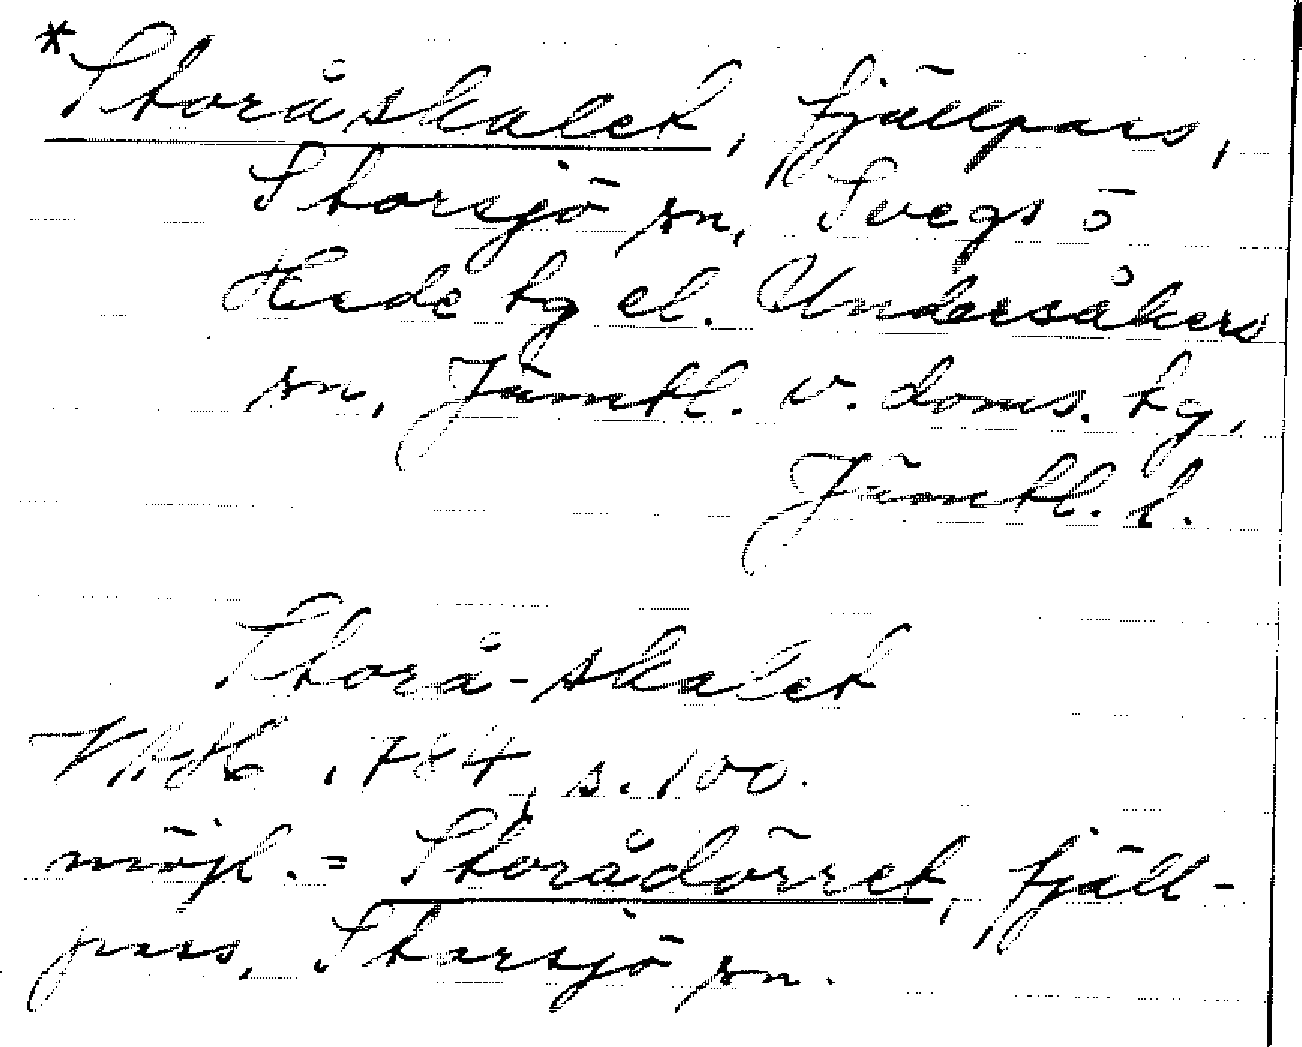 *Storåskalet, fjällpass,
Storsjö sn, Svegs o
Hede tg el. Undersåkers
sn, Jämtl. v. doms. tg,
Jämtl. l.
Storå-skalet
784, s. 100.
möjl. = Storådörret, fjäll-
pass, Storsjö sn.